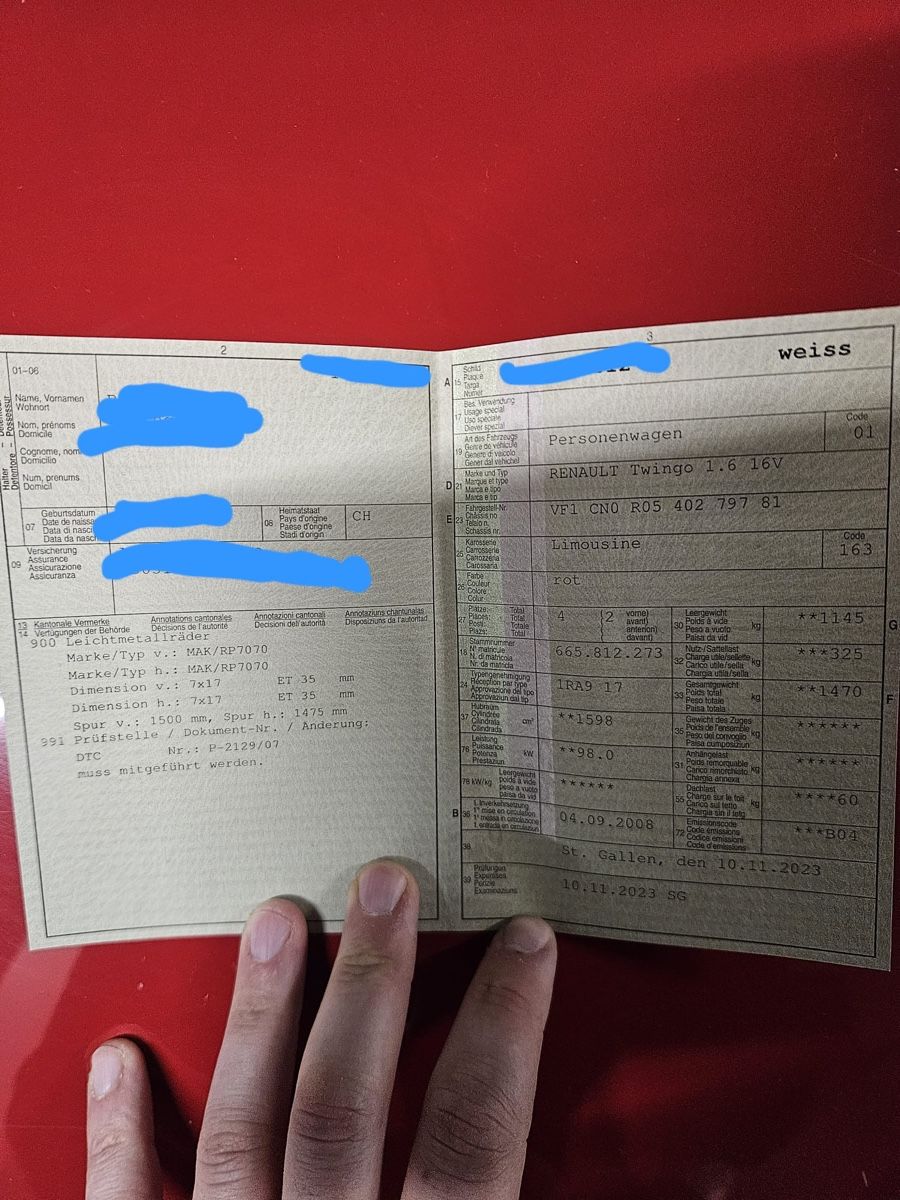 2
01-06
Name, Vornamen
Wohnort
Nom, prénoms
Domicile
Cognome, nomi
Domicilio
Num, prenums
Domicil
Halter – Détenteur
Detentore – Possessur
07
Geburtsdatum
Date de naiss
Data di nasci
Data da nasch
08
Heimatstaat
Pays d'origine
Paese d'origine
Stadi d'origin
CH
09
Versicherung
Assurance
Assicurazione
Assicuranza
13 Kantonale Vermerke Annotations cantonales Annotazioni cantonali Annotaziuns chantunalas
14 Verfügungen der Behörde Décisions de l'autorité Decisioni dell'autorità Disposiziuns da l'autoritad
900 Leichtmetallräder
Marke/Typ v.: MAK/RP7070
Marke/Typ h.: MAK/RP7070
Dimension v.: 7x17 ET 35 mm
Dimension h.: 7x17 ET 35 mm
Spur v.: 1500 mm, Spur h.: 1475 mm
991 Prüfstelle / Dokument-Nr. / Änderung:
DTC Nr.: P-2129/07
muss mitgeführt werden.
3
A
15
Schild
Plaque
Targa
Numer
weiss
17
Bes. Verwendung
Usage spécial
Uso speciale
Diever spezial
19
Art des Fahrzeugs
Genre de véhicule
Genere di veicolo
Gener dal vehichel
Personenwagen
Code
01
D
21
Marke und Typ
Marque et type
Marca e tipo
Marca e tip
RENAULT Twingo 1.6 16V
E
23
Fahrgestell-Nr.
Châssis no
Telaio n.
Schassis nr.
VF1 CN0 R05 402 797 81
25
Karosserie
Carrosserie
Carrozzeria
Carossaria
Limousine
Code
163
26
Farbe
Couleur
Colore
Colur
rot
27
Plätze: Total
Places: Total
Posti: Totale
Plazs: Total
4 (2 vorne)
avant)
anteriori)
davant)
30
Leergewicht
Poids à vide
Peso a vuoto
Paisa da vid
kg
**1145
G
18
Stammnummer
N° matricule
N. di matricola
Nr. da matricla
665.812.273
32
Nutz-/Sattellast
Charge utile/sellette
Carico utile/sella
Chargia utila/sella
kg
***325
24
Typengenehmigung
Réception par type
Approvazione del tipo
Approvaziun dal tip
1RA9 17
33
Gesamtgewicht
Poids total
Peso totale
Paisa totala
kg
**1470
F
37
Hubraum
Cylindrée
Cilindrata
Cilindrada
cm³
**1598
35
Gewicht des Zuges
Poids de l'ensemble
Peso del convoglio
Paisa cumposiziun
kg
******
76
Leistung
Puissance
Potenza
Prestaziun
kW
**98.0
31
Anhängelast
Poids remorquable
Carico rimorchiato
Chargia annexa
kg
******
78 kW/kg
Leergewicht
poids à vide
peso a vuoto
paisa da vid
******
55
Dachlast
Charge sur le toit
Carico sul tetto
Chargia sin il tetg
kg
****60
B
36
1. Inverkehrsetzung
1re mise en circulation
1a messa in circolazione
1. entrada en circulaziun
04.09.2008
72
Emissionscode
Code émissions
Codice emissioni
Code d'emissiuns
***B04
38
St. Gallen, den 10.11.2023
39
Prüfungen
Expertises
Perizie
Examinaziuns
10.11.2023 SG